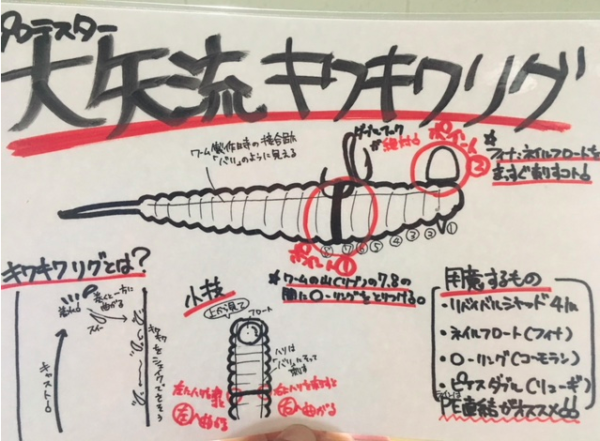 プロテスター
大矢流 キワキワリグ
ワーム製作時の接合部が
「バリ」のように見える
ダブルフック
が絶対!!
ポイント②
※
フィナ・ネイルフロートを
まっすぐ刺すコト!!
⑧ ⑦ ⑥ ⑤ ④ ③ ② ①
ポイント①
※ワームの山(リブ)の7.8の
間にO-リングをとりつける。
キワキワリグとは?
キャスト!!
キワキワをシェイクでさそう
小技
上から見て
フロート
左へ曲がる
右へ曲がる
用意するもの
・リバイバルシャッド4in
・ネイルフロート(フィナ)
・O-リング(コーモラン)
・ピアスダブル(リューギ)
PE直結がオススメ!!